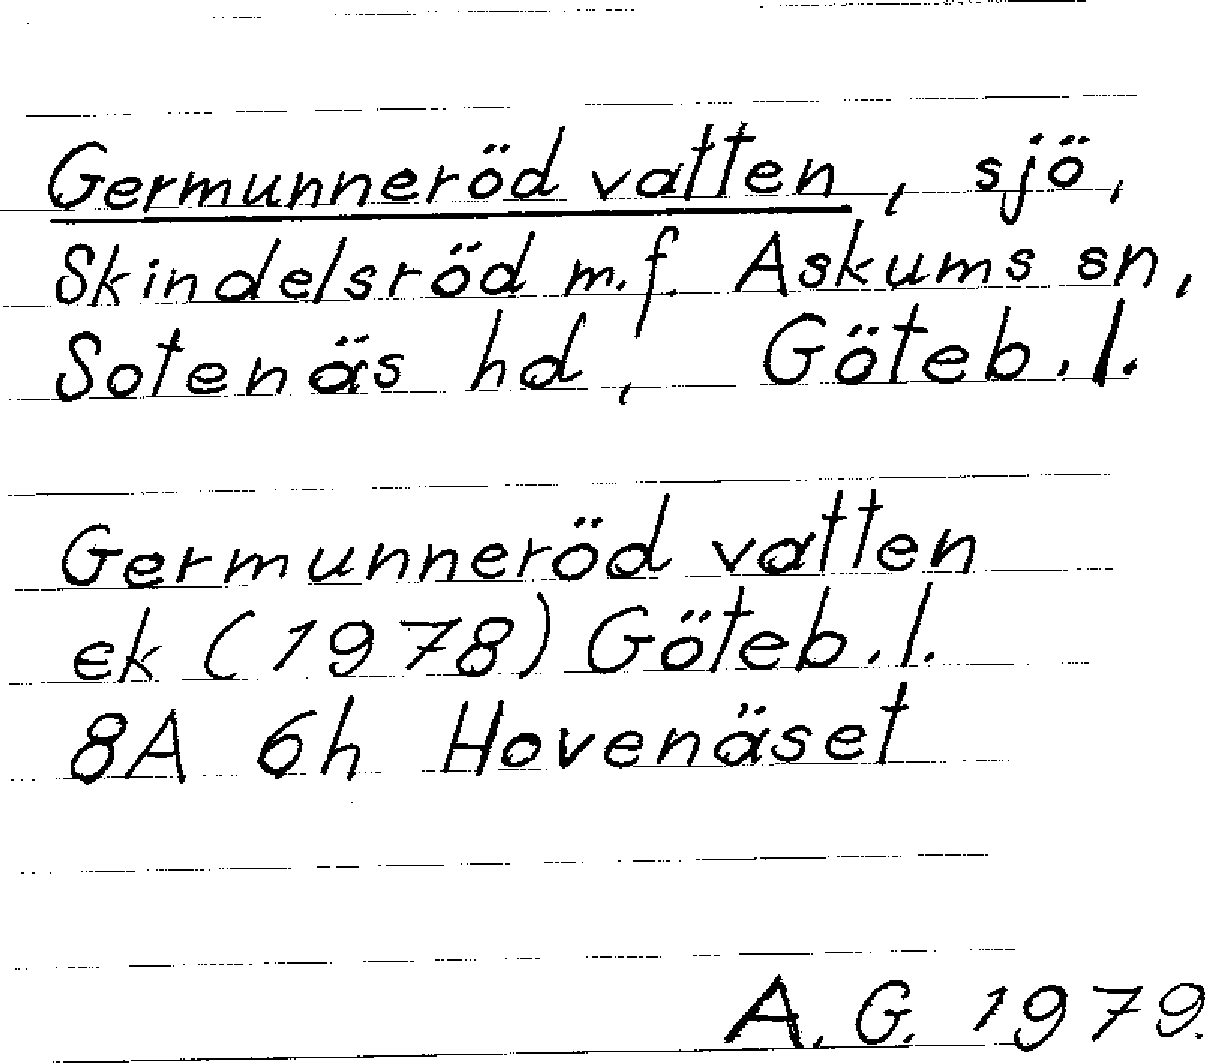 Germunneröd vatten, sjö,
Skindelsröd m.f. Askums sn,
Sotenäs hd, Göteb.l.
Germunneröd vatten
ek (1978) Göteb.l.
8A 6h Hovenäset
A.G. 1979.